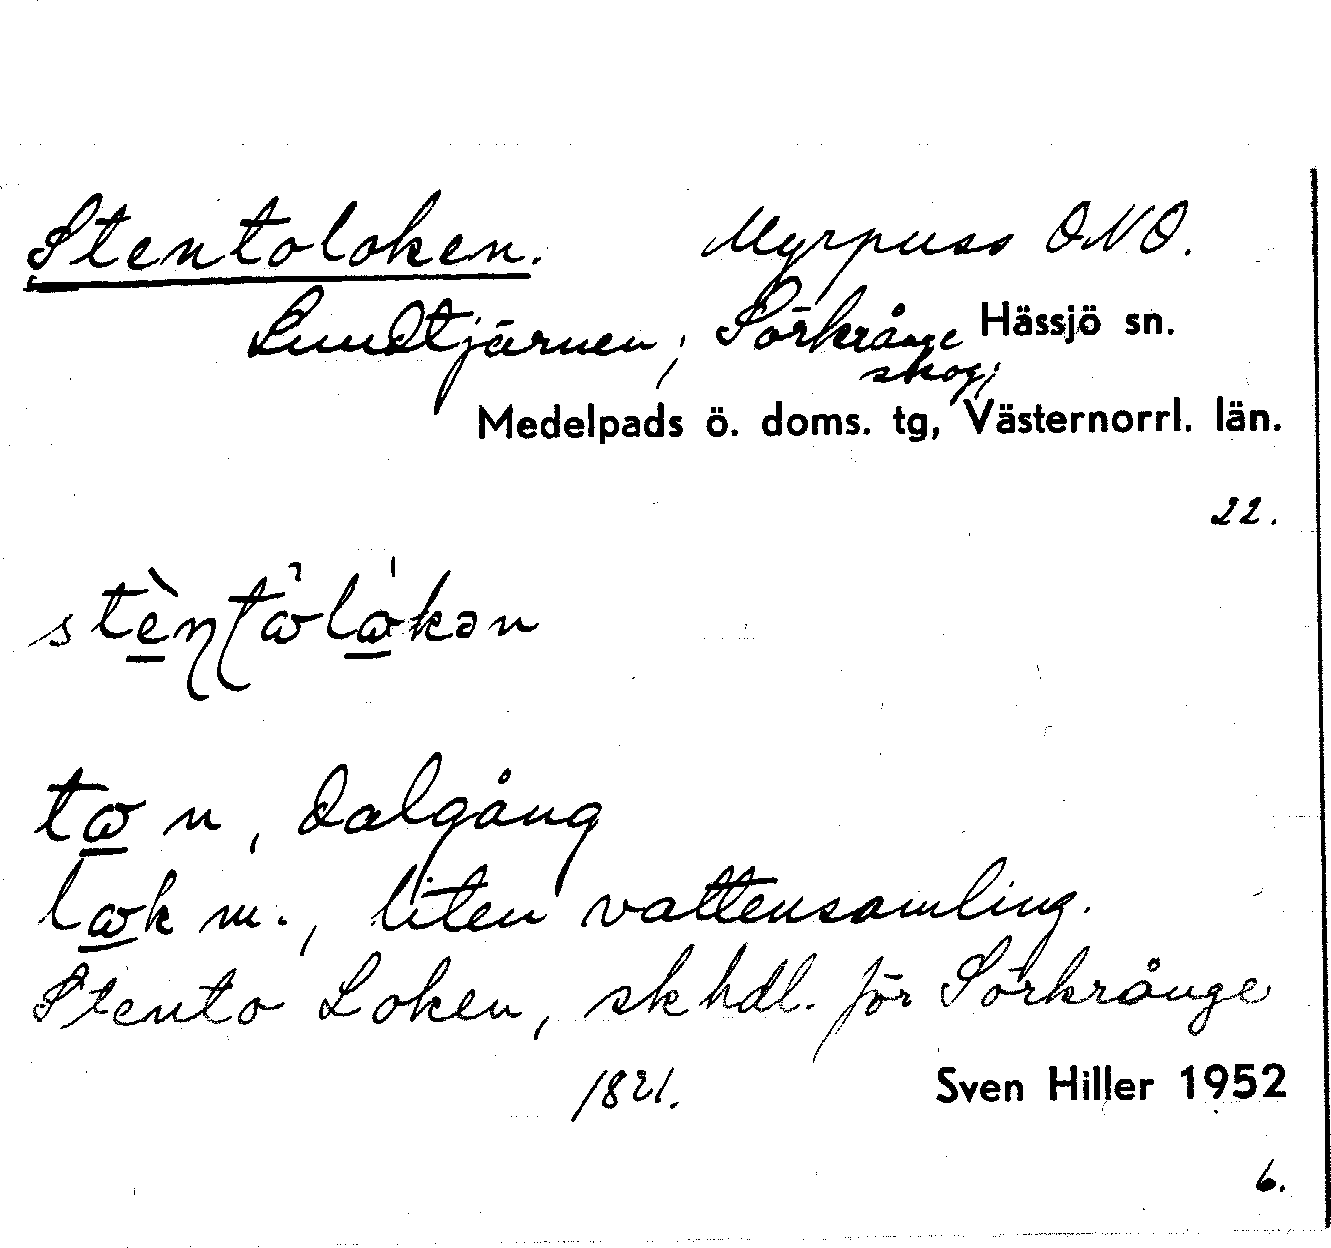 Stentoloken. Myrpuss ONO.
Lundtjärnen; Sörkrånge Hässjö sn.
skog;
Medelpads ö. doms. tg, Västernorrl. län.
22.
to n, dalgång
lok m., liten vattensamling.
Stento Loken, sk hdl. för Sörkrånge
1821. Sven Hiller 1952
6.